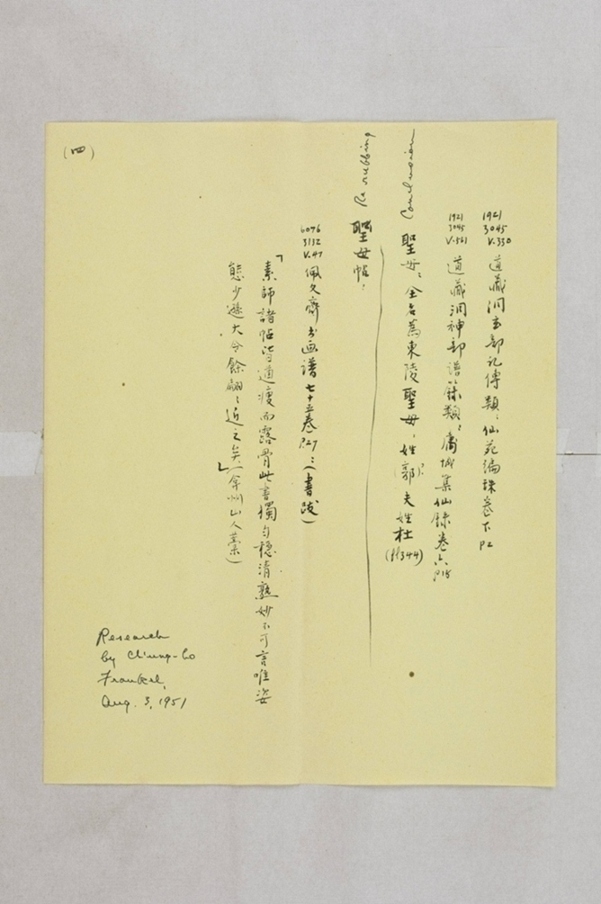 1921
3045
V.330
道藏洞玄部記傳類:仙苑編珠卷下 P2
1921
3045
V.561
道藏洞神部譜錄類:墉城集仙錄卷六 P18
Conclusion
聖母:全名為東陵聖母,姓郭,夫姓杜
(P1344)
Re rubbing
聖母帖:
6096
3132
V.47
佩文齋书画譜七十三卷 P27:(書跋)
「素師諸帖皆遒瘦而露骨此書獨勻穩清熟妙不可言唯姿
態少遜大令餘翩翩近之矣」(弇州山人藁)
(四)
Research
by Ch'ung-ho
Frankel,
Aug. 3, 1951